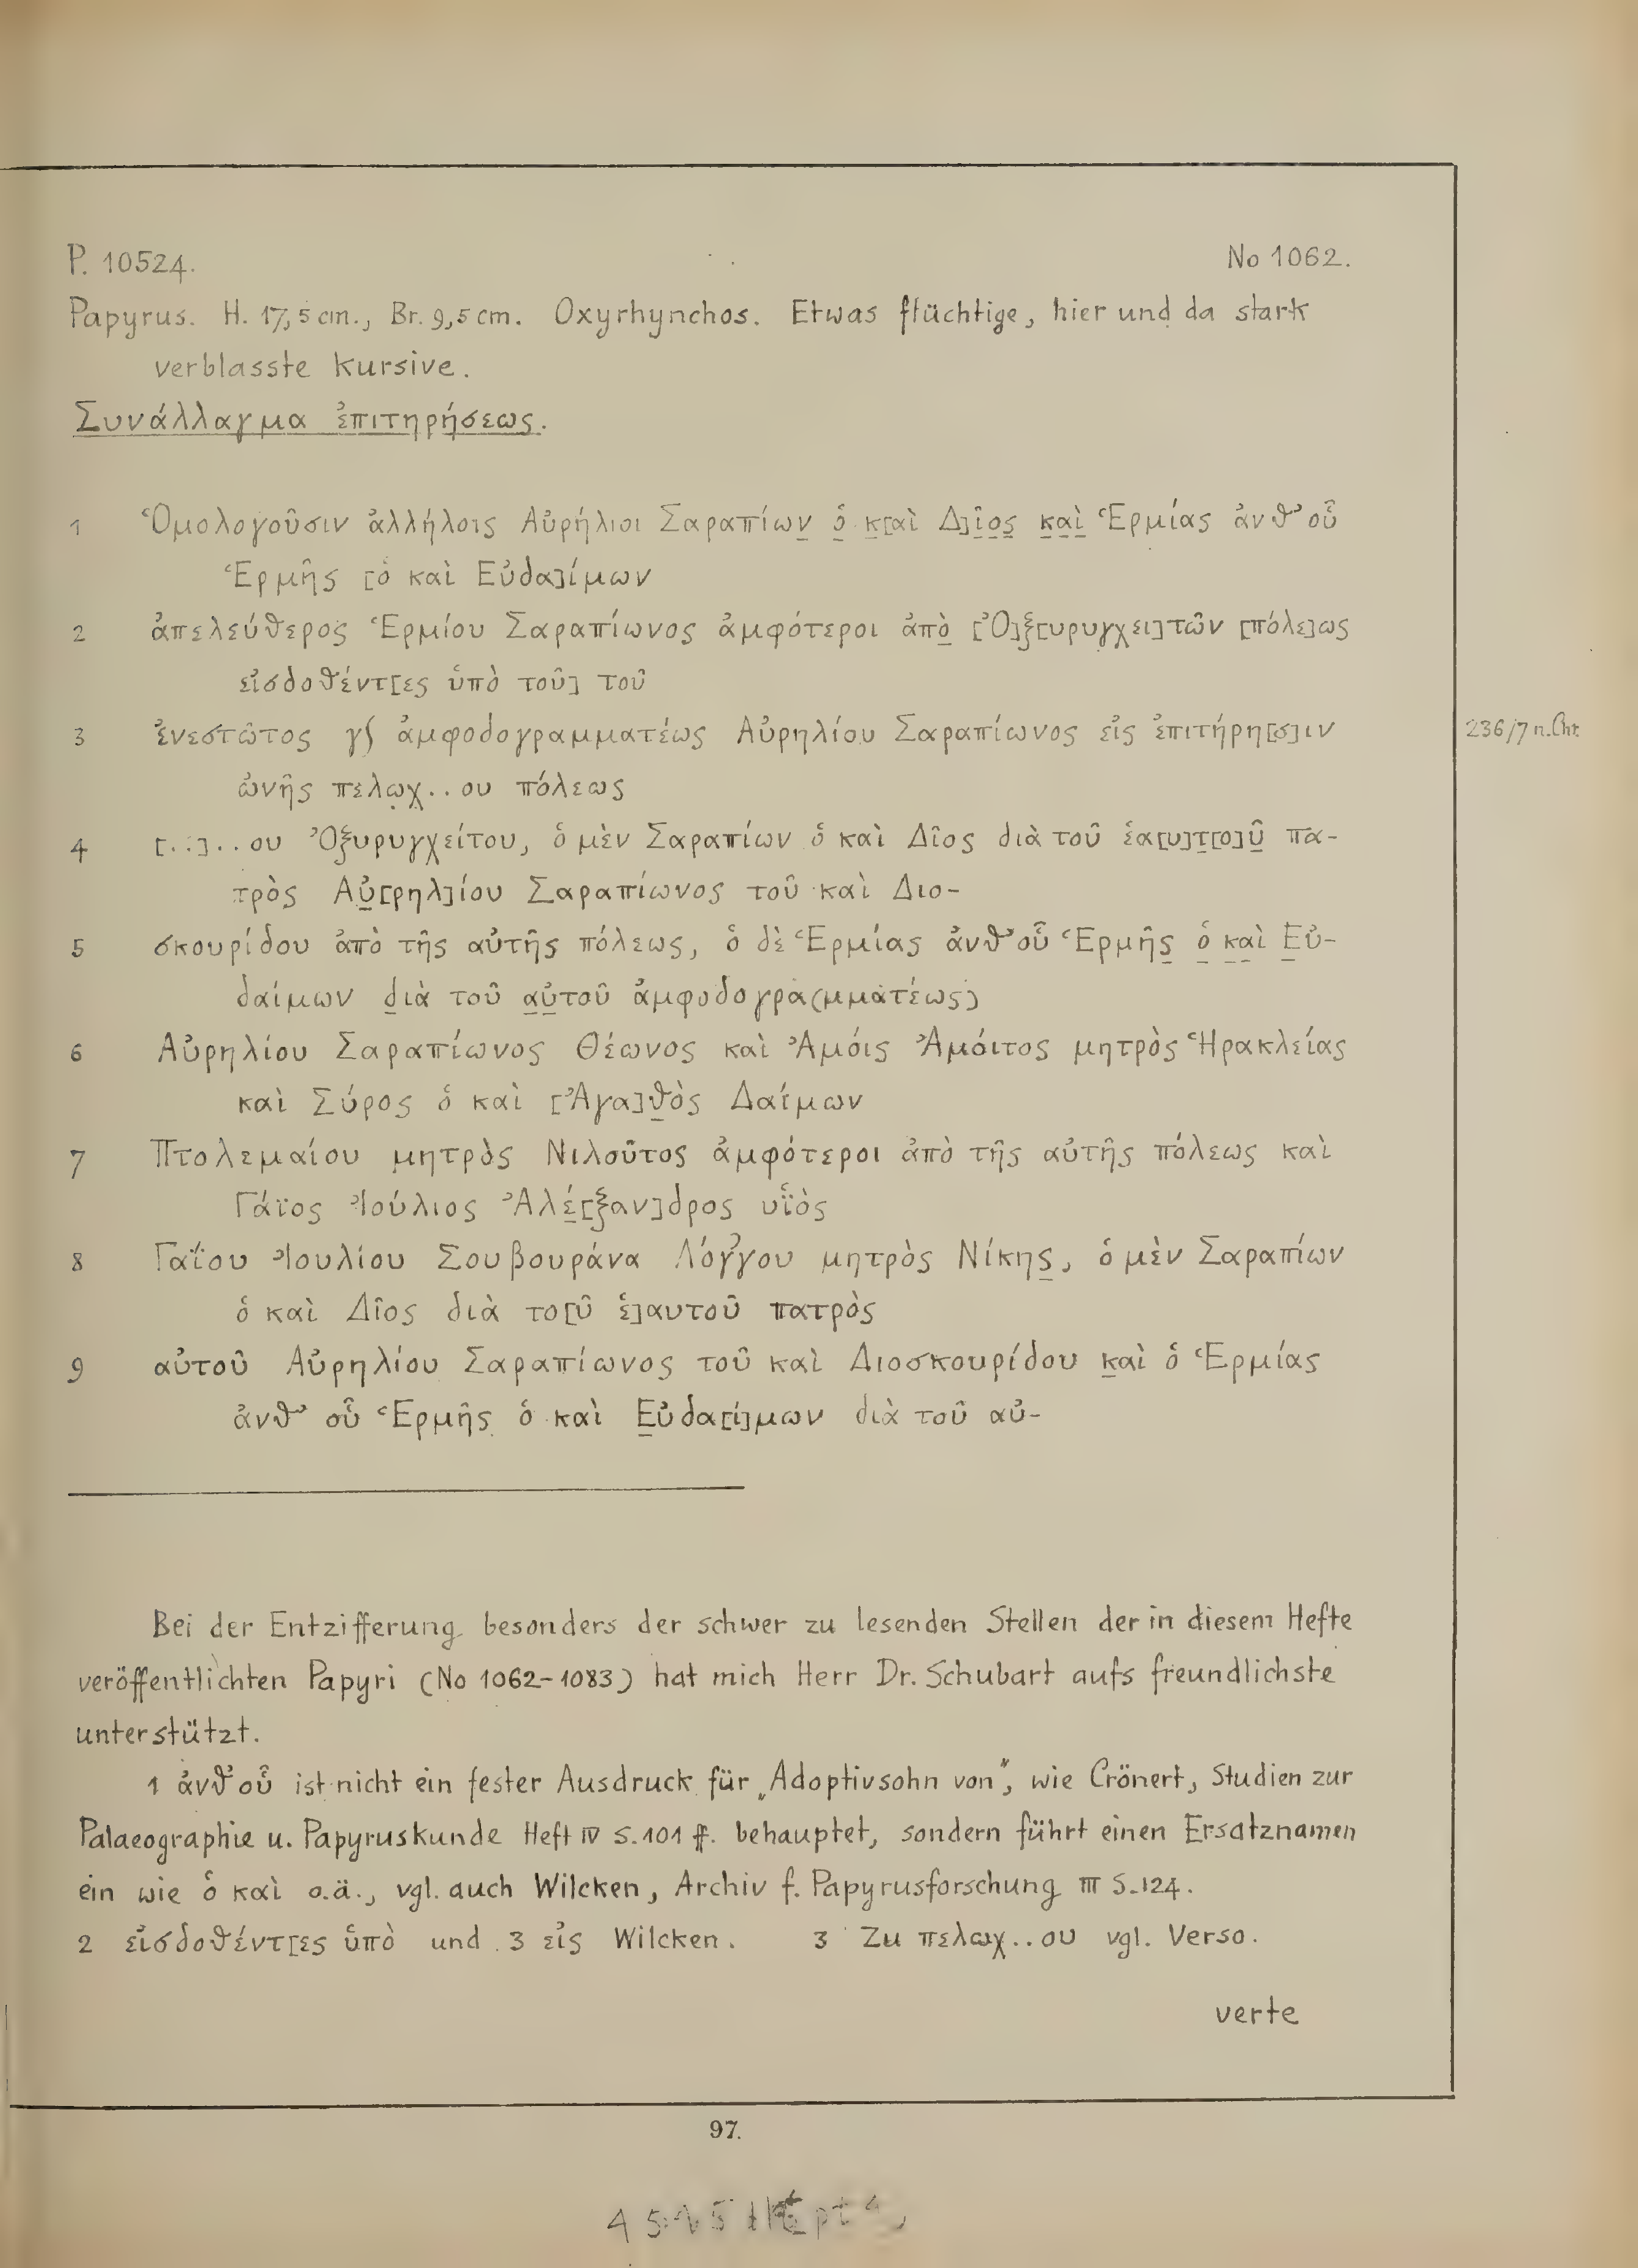 P. 10524. No 1062.
Papyrus. H. 17,5 cm., Br. 9,5 cm. Oxyrhynchos. Etwas flüchtige, hier und da stark
verblasste Kursive.
Συνάλλαγμα ἐπιτηρήσεως.
1 Ὁμολογοῦσιν ἀλλήλοις Αὐρήλιοι Σαραπίων̣ ὁ̣ κ̣[αὶ Δ]ῖ̣ο̣ς̣ κ̣α̣ὶ̣ Ἑρμίας ἀνθʼ οὗ
Ἑρμῆς [ὁ καὶ Εὐδα]ίμων
2 ἀπελεύθερος Ἑρμίου Σαραπίωνος ἀμφότεροι ἀπὸ̣ [Ὀ]ξ[υρυγχει]τῶν [πόλε]ως
εἰσδοθέντ[ες ὑπὸ τοῦ] τοῦ
3 ἐνεστῶτος γ∫ ἀμφοδογραμματέως Αὐρηλίου Σαραπίωνος εἰς ἐπιτήρη[σ]ιν 236/7 n. Chr.
ὠνῆς πελω̣χ̣..ου πόλεως
4 [..:]..ου Ὀξυρυγχείτου, ὁ μὲν Σαραπίων ὁ καὶ Δῖος διὰ τοῦ ἑα[υ]τ̣[ο]ῦ̣ πα-
τρὸς Αὐ̣[ρηλ]ίου Σαραπίωνος τοῦ καὶ Διο-
5 σκουρίδου ἀπὸ τῆς αὐτῆς πόλεως, ὁ δὲ Ἑρμίας ἀνθʼ οὗ Ἑρμῆς̣ ὁ̣ κ̣α̣ὶ Ε̣ὐ-
δαίμων δ̣ιὰ τοῦ α̣ὐ̣τοῦ ἀμφοδογρα(μματέως)
6 Αὐρηλίου Σαραπίωνος Θέωνος καὶ Ἀμόις Ἀμόιτος μητρὸς Ἡρακλείας
καὶ Σύρος ὁ καὶ [Ἀγα]θ̣ὸς Δαίμων
7 Πτολεμαίου μητρὸς Νιλοῦτος ἀμφότεροι ἀπὸ τῆς αὐτῆς πόλεως καὶ
Γάϊος Ἰούλιος Ἀλέ̣[ξαν]δρος υἱὸς
8 Γαΐου Ἰουλίου Σουβουράνα Λόγʼγου μητρὸς Νίκης̣, ὁ μὲν Σαραπίων
ὁ καὶ Δῖος διὰ το[ῦ ἑ]αυτοῦ πατρὸς
9 αὐτοῦ Αὐρηλίου Σαραπίωνος τοῦ καὶ Διοσκουρίδου κ̣αὶ ὁ Ἑρμίας
ἀνθʼ οὗ Ἑρμῆς ὁ καὶ Ε̣ὐδα[ί]μων διὰ τοῦ αὐ-
Bei der Entzifferung besonders der schwer zu lesenden Stellen der in diesem Hefte
veröffentlichten Papyri (No 1062-1083) hat mich Herr Dr. Schubart aufs freundlichste
unterstützt.
1 ἀνθʼ οὗ ist nicht ein fester Ausdruck für „Adoptivsohn von“, wie Crönert, Studien zur
Palaeographie u. Papyruskunde Heft IV S. 101 ff. behauptet, sondern führt einen Ersatznamen
ein wie ὁ καὶ o.ä., vgl. auch Wilcken, Archiv f. Papyrusforschung III S. 124.
2 εἰσδοθέντ[ες ὑπὸ und 3 εἰς Wilcken. 3 Zu πελωχ..ου vgl. Verso.
verte
97.